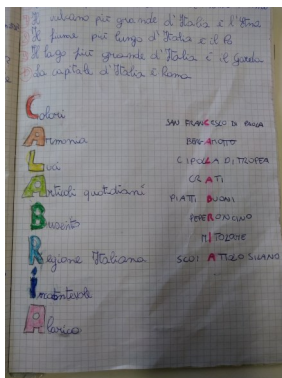 Il vulcano più grande d'Italia è l'Etna
Il fiume più lungo d'Italia è il Po
Il lago più grande d'Italia è il Garda
La capitale d'Italia è Roma
Colori
Armonia
Luci
Attuali quotidiani
Busento
Regione Italiana
Incantevole
Alarico
SAN FRANCESCO DI PAOLA
BERGAMOTTO
CIPOLLA DI TROPEA
CRATI
PIATTI BUONI
PEPERONCINO
SCOIATTOLO SILANO